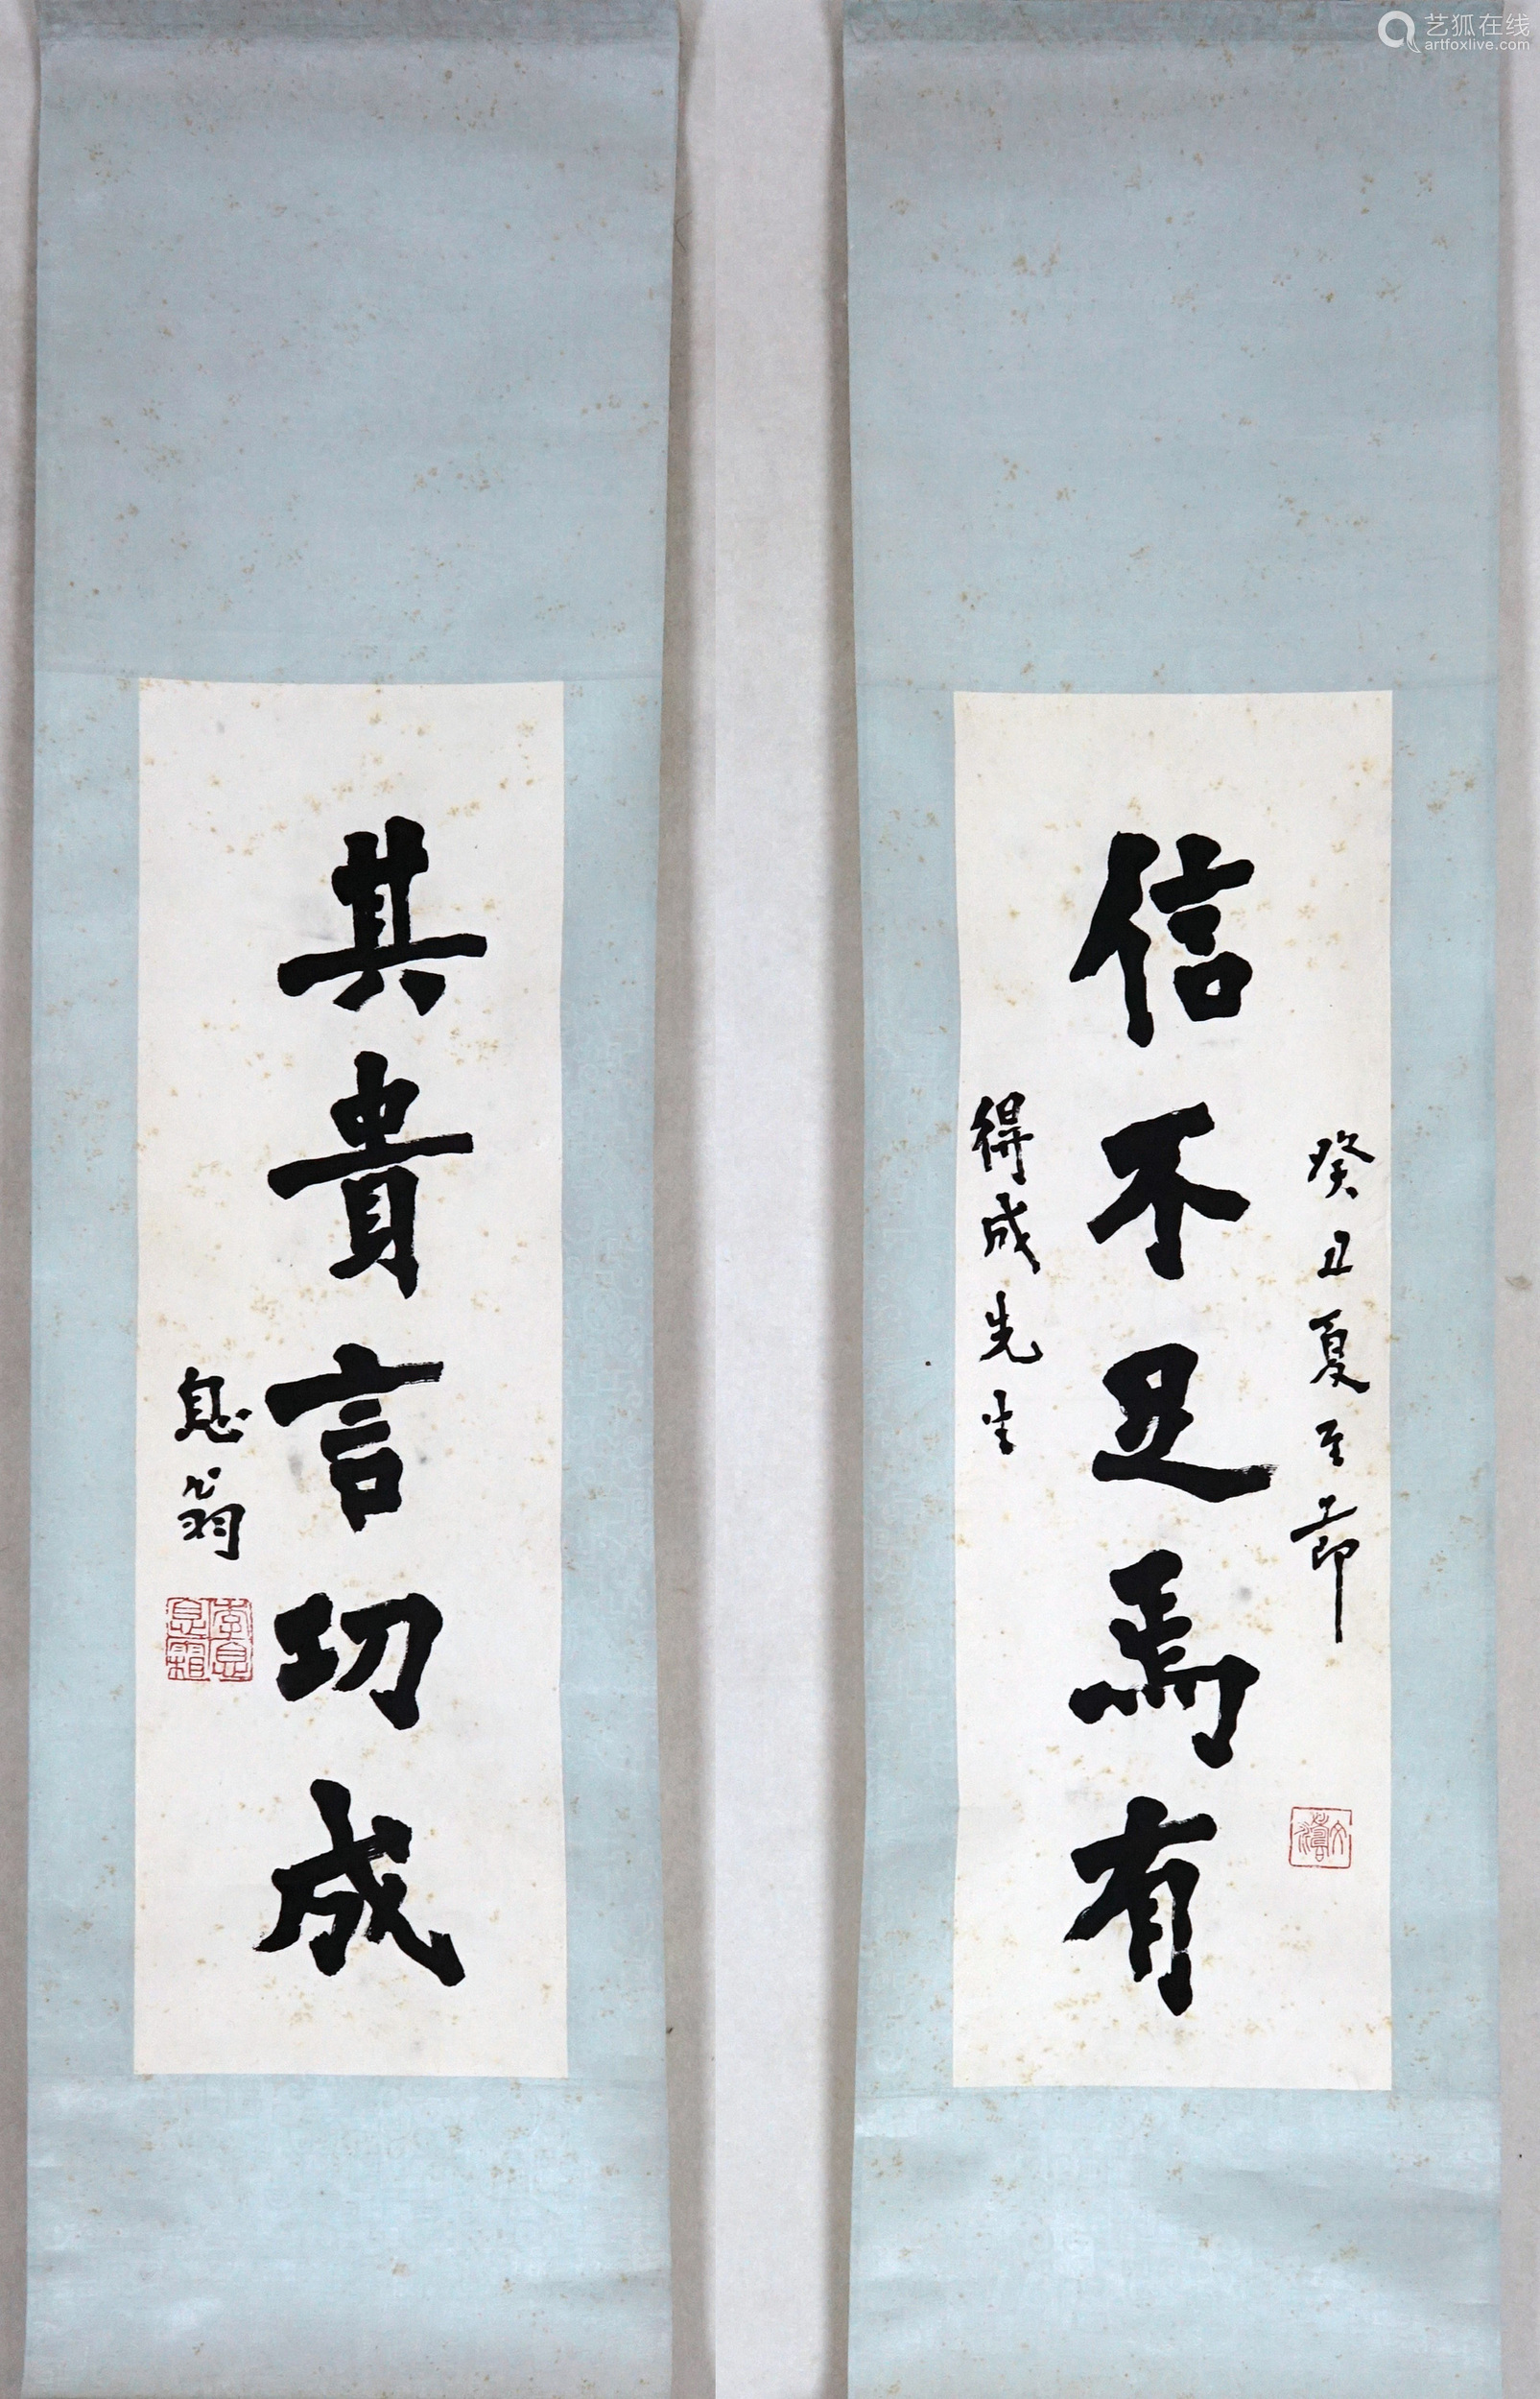 艺狐在线
artfoxlive.com
癸丑夏至節
信不足焉有
得成先生
其貴言功成
息翁
李息
息霜